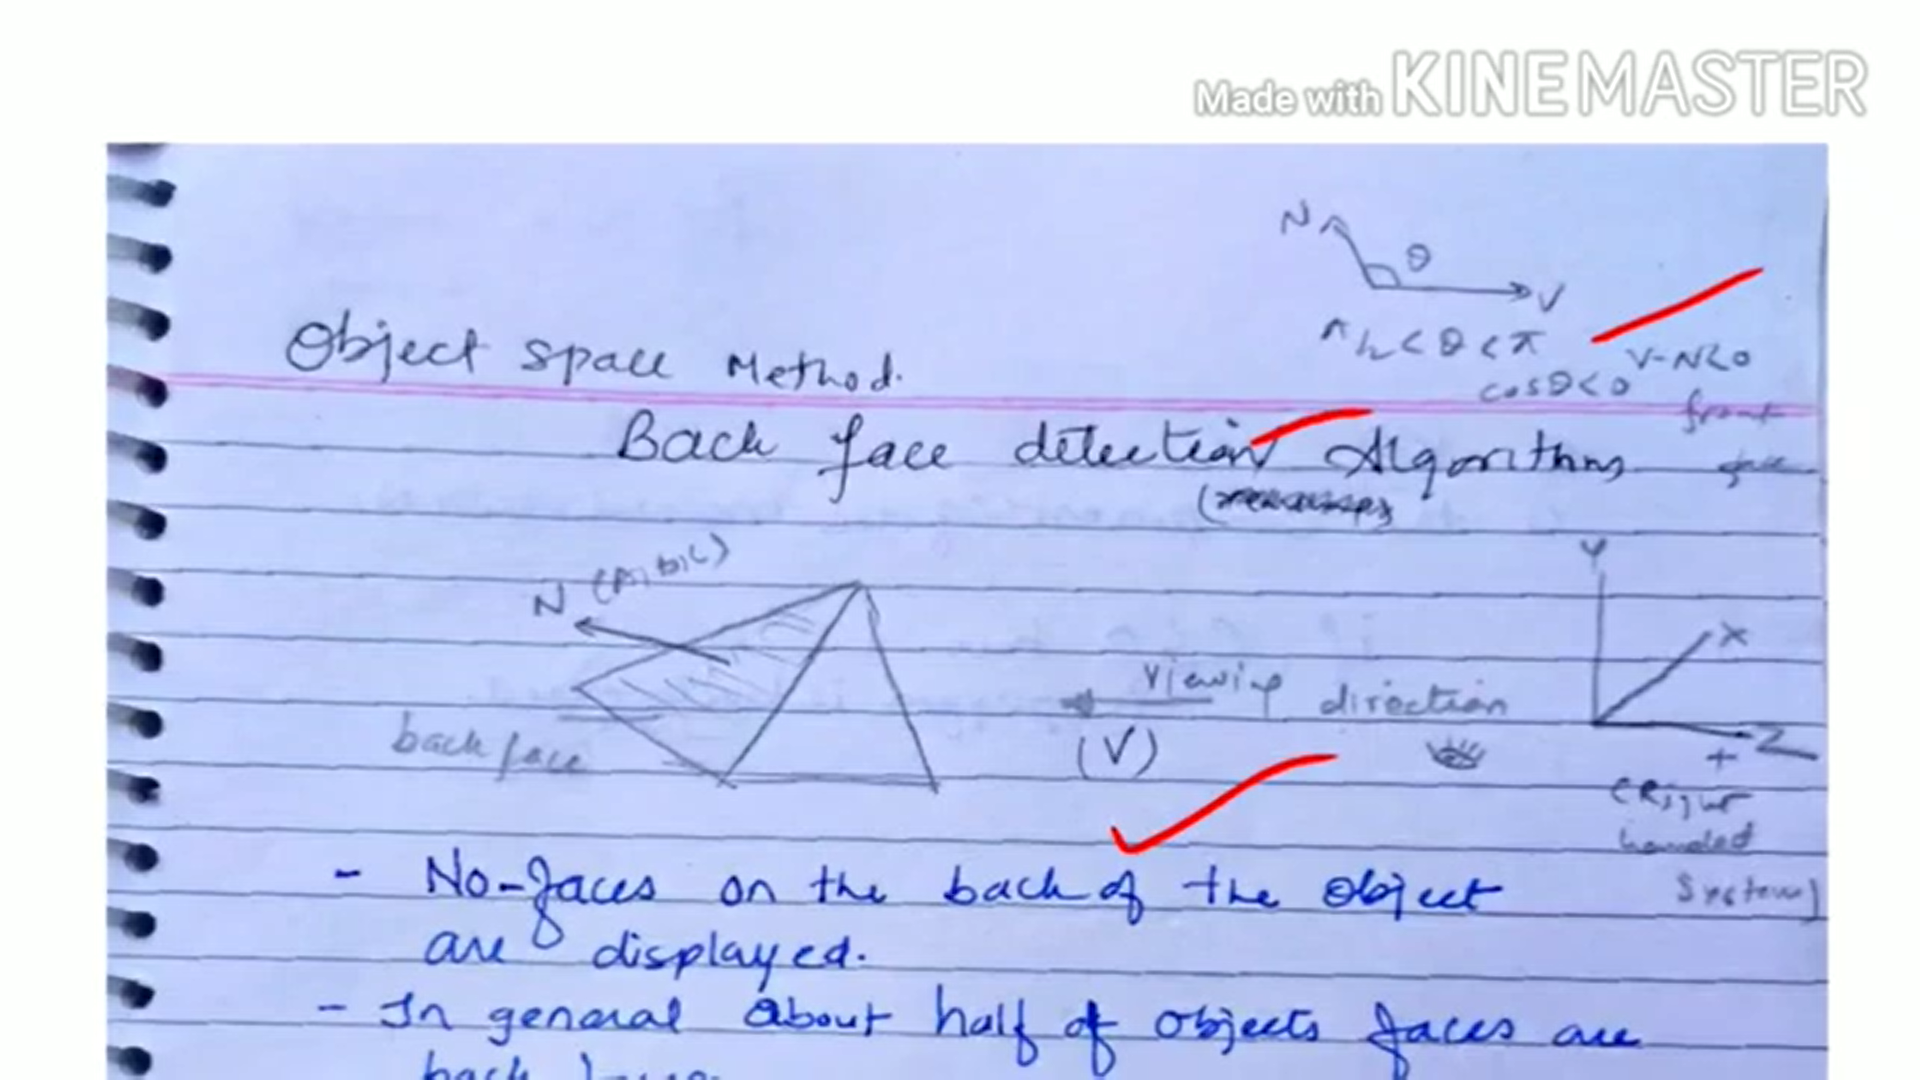 Made with KINEMASTER
N
θ
V
π/2 < θ < π
V-N<0
cosθ<0
front
face
Object space Method.
Back face detection Algorithm
N (A,b,c)
Y
X
Viewing direction
(V)
Z
+
back face
(Right
handed
System)
- No-faces on the back of the object
are displayed.
- In general about half of objects faces are
back faces